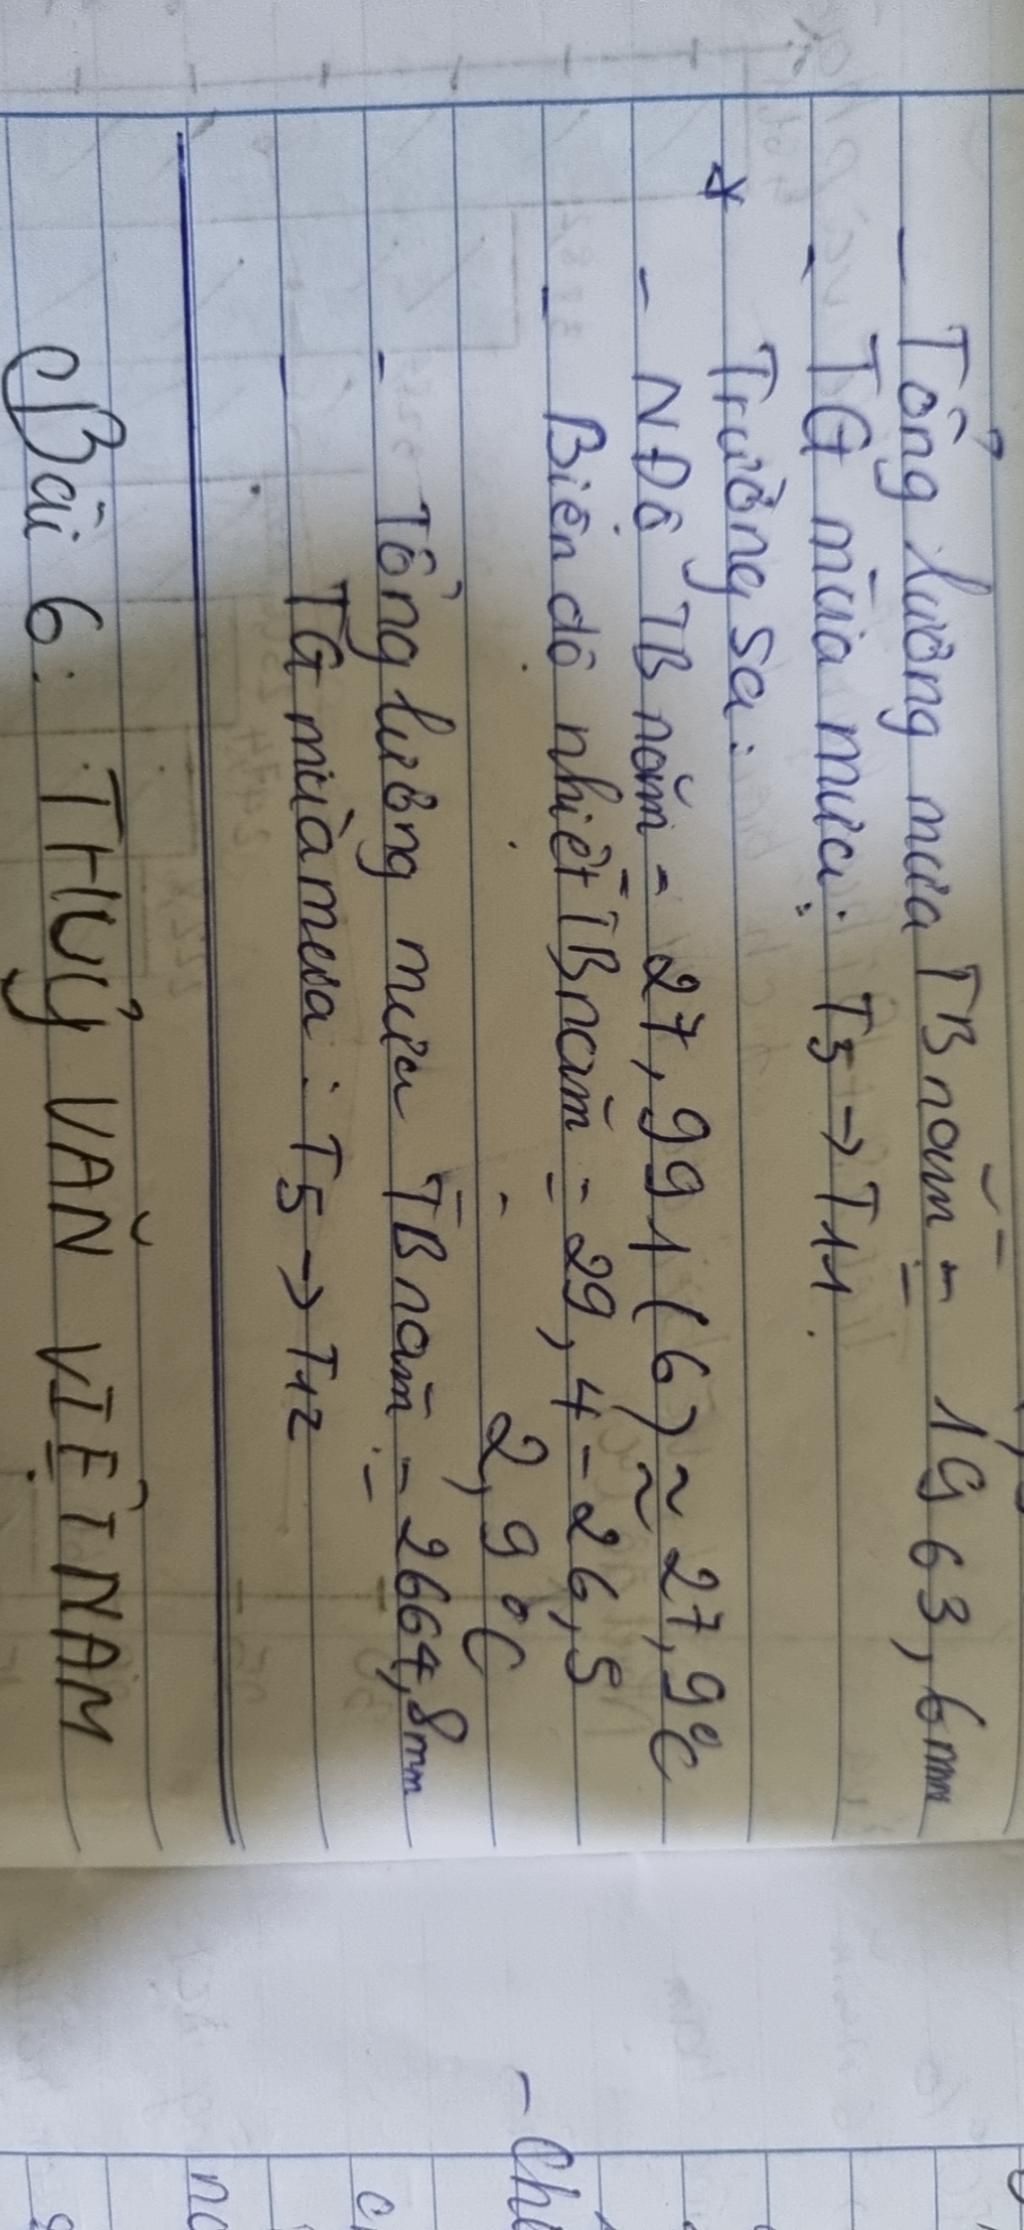 - Tổng lượng mưa TB năm = 1963,6mm
- TG mùa mưa: T5 → T11.
* Trường Sa:
- NĐộ TB năm = 27,991(6) ≈ 27,9°C
- Biên độ nhiệt TB năm = 29,4 - 26,5
= 2,9°C
- Tổng lượng mưa TB năm = 2664,8mm
- TG mùa mưa: T5 → T12
Bài 6: THUỶ VĂN VIỆT NAM
- Ch